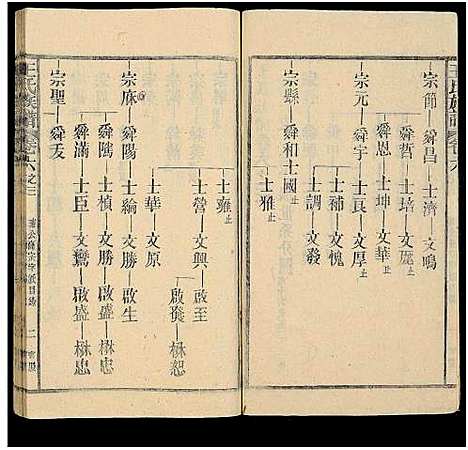 王氏族譜 卷六
宗節 舜昌 士濟 文鳴
舜哲 士培 文 止
舜恩 士坤 文華 止
宗元 舜宇 士良 文厚 止
士補 文愧
宗縣 舜和 士國 止 士調 文發
士雅 止
士雍 止
士營 文興 啟至
啟發 楙恕
士華 文原
宗麻 舜陽 士綸 文勝 啟生
舜隋 士楨 文勝 啟盛 楙忠
舜滿 士臣 文鸞 啟盛 楙忠
宗聖 舜友
王氏族譜 卷六之三 公裔宗字派目錄 二